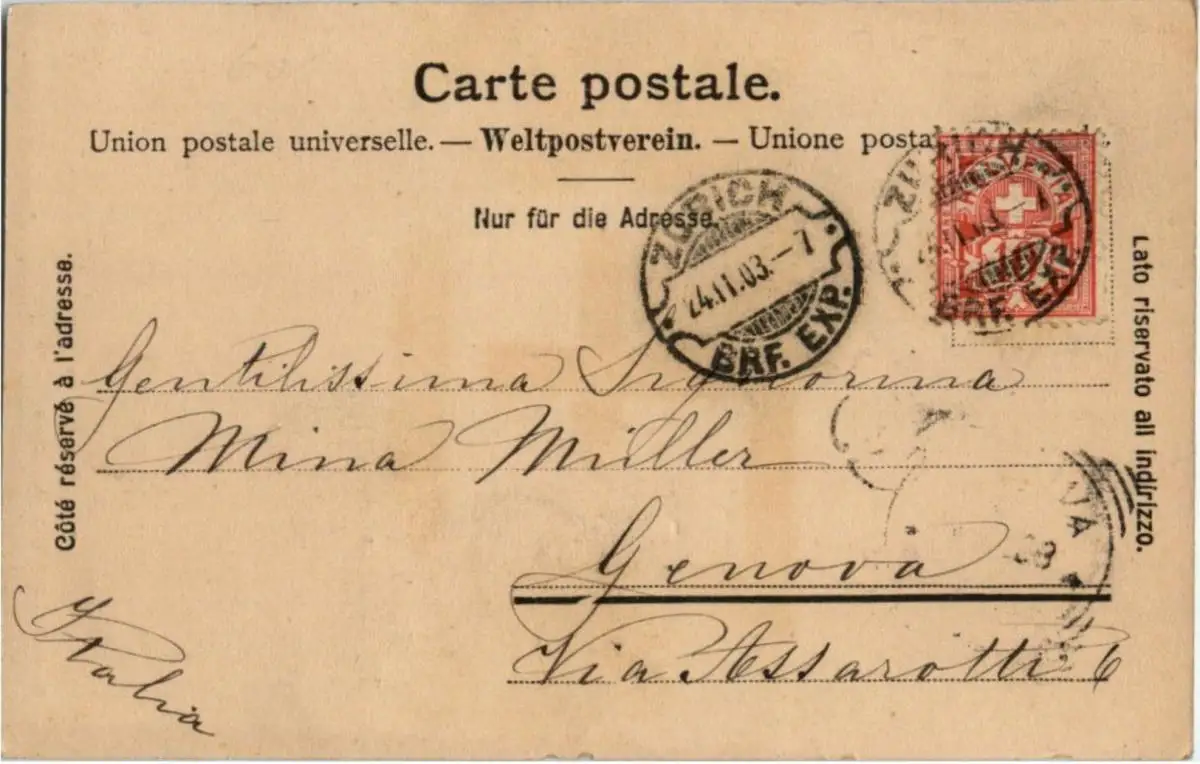 Carte postale.
Union postale universelle. — Weltpostverein. — Unione posta
Nur für die Adresse.
Côté réservé à l'adresse.
Lato riservato all indirizzo.
ZÜRICH
24.11.03.–7
BRF. EXP.
ZÜRICH
BRF. EXP.
Gentilissima Signorina
Mina Müller
Genova
Via Assarotti 6
Italia